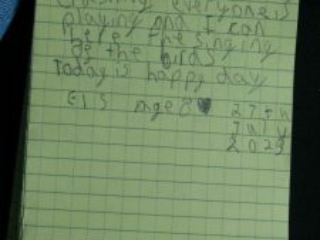 everyone is
playing and I can
here the singing
of the birds
Today is happy day
age 8 27th
July
2023